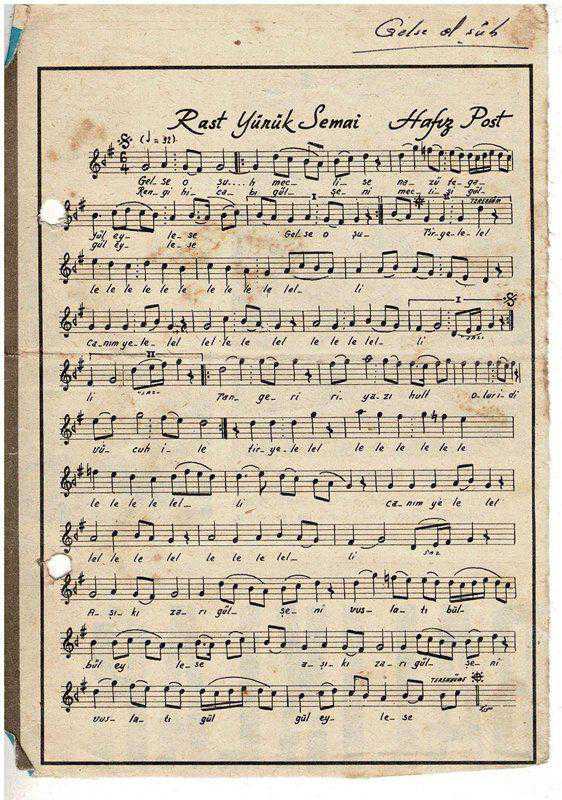 Gelse ol şûh
Rast Yürük Semai Hafız Post
(♩=92)
6 4
Gel_se o şu....h mec_ li_ se na_ zü te_ga_
Ren_gi hi_ ca_ bı gül_ şe_ ni mec_ li_ si gül_
I TERENNÜM
fül ey_ le_se Gel_se o şu_ Tir_ye_le_lel
gül ey_ le_se
le le le le le le le le le lel_ li
I
Ca_nım ye_le_lel lel le le lel le le le lel_ li SAZ
II
li SAZ Tan_ ge_ ri ri_ ya_zı hatt o_lur_i_di
vü_ cuh i_ le tir_ye_le lel le le le le le le
le le le le lel_ li ca_nım ye le lel
lel le le lel le le le lel_ li saz
A_ şı_ kı za_ rı gül_ şe_ni vus_ la_ tı bül_
bül ey le_se a_şı_kı za_rı gül_ şe_ni
TERENNÜME
vus_ la_ tı gül gül ey_ le_se